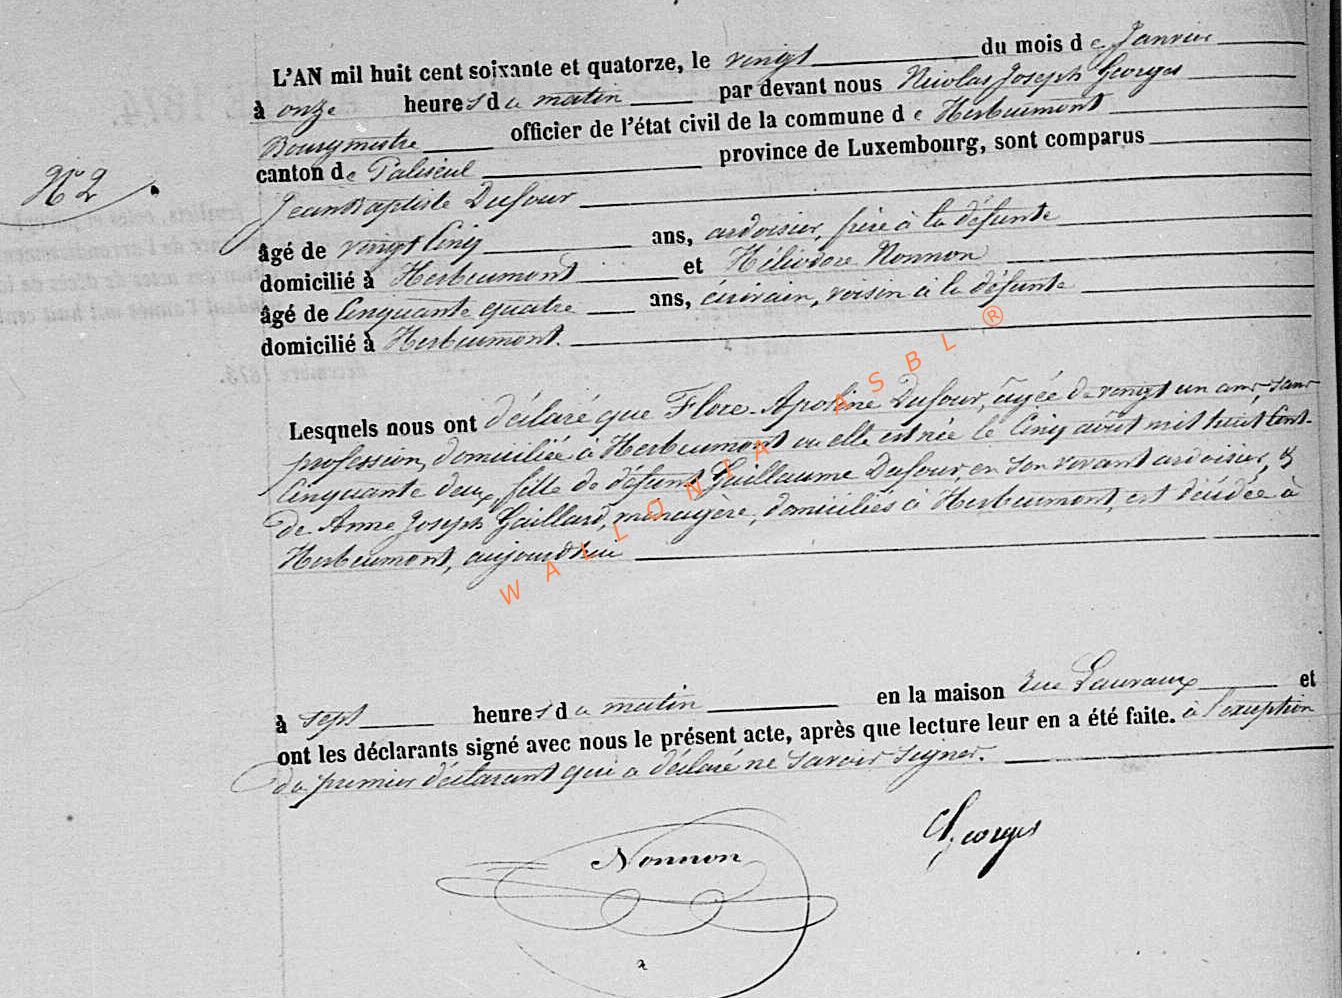 L'AN mil huit cent soixante et quatorze, le vingt du mois de Janvier
à onze heures du matin par devant nous Nicolas Joseph Georges
Bourgmestre officier de l'état civil de la commune de Herbeumont
canton de Paliseul province de Luxembourg, sont comparus
N° 2
Jean Baptiste Dufour
âgé de vingt cinq ans, ardoisier, frère à la défunte
domicilié à Herbeumont et Héliodore Nonnon
âgé de Cinquante quatre ans, écrivain, voisin à la défunte
domicilié à Herbeumont.
Lesquels nous ont déclaré que Flore-Apoline Dufour, âgée de vingt un ans, sans
profession, domiciliée à Herbeumont ou elle est née le Cinq août mil huit Cent-
Cinquante deux, fille de défunt Guillaume Dufour, en son vivant ardoisier, &
de Anne Joseph Gaillard, ménagère, domiciliés à Herbeumont, est décédée à
Herbeumont, aujourd'hui
à sept heures du matin en la maison rue Lauvaux et
ont les déclarants signé avec nous le présent acte, après que lecture leur en a été faite. à l'exception
du premier déclarant qui a déclaré ne savoir signer.
Nonnon
Georges
WALLONIA ASBL ®